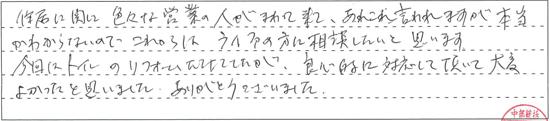 住居に関し色々な営業の人がまわって来て、あれこれ言われますが本当
かわからないので これからは ライフの方に相談したいと思います。
今回はトイレのリフォームでしたが、良心的に対応して頂いて大変
よかったと思いました。ありがとうございました。